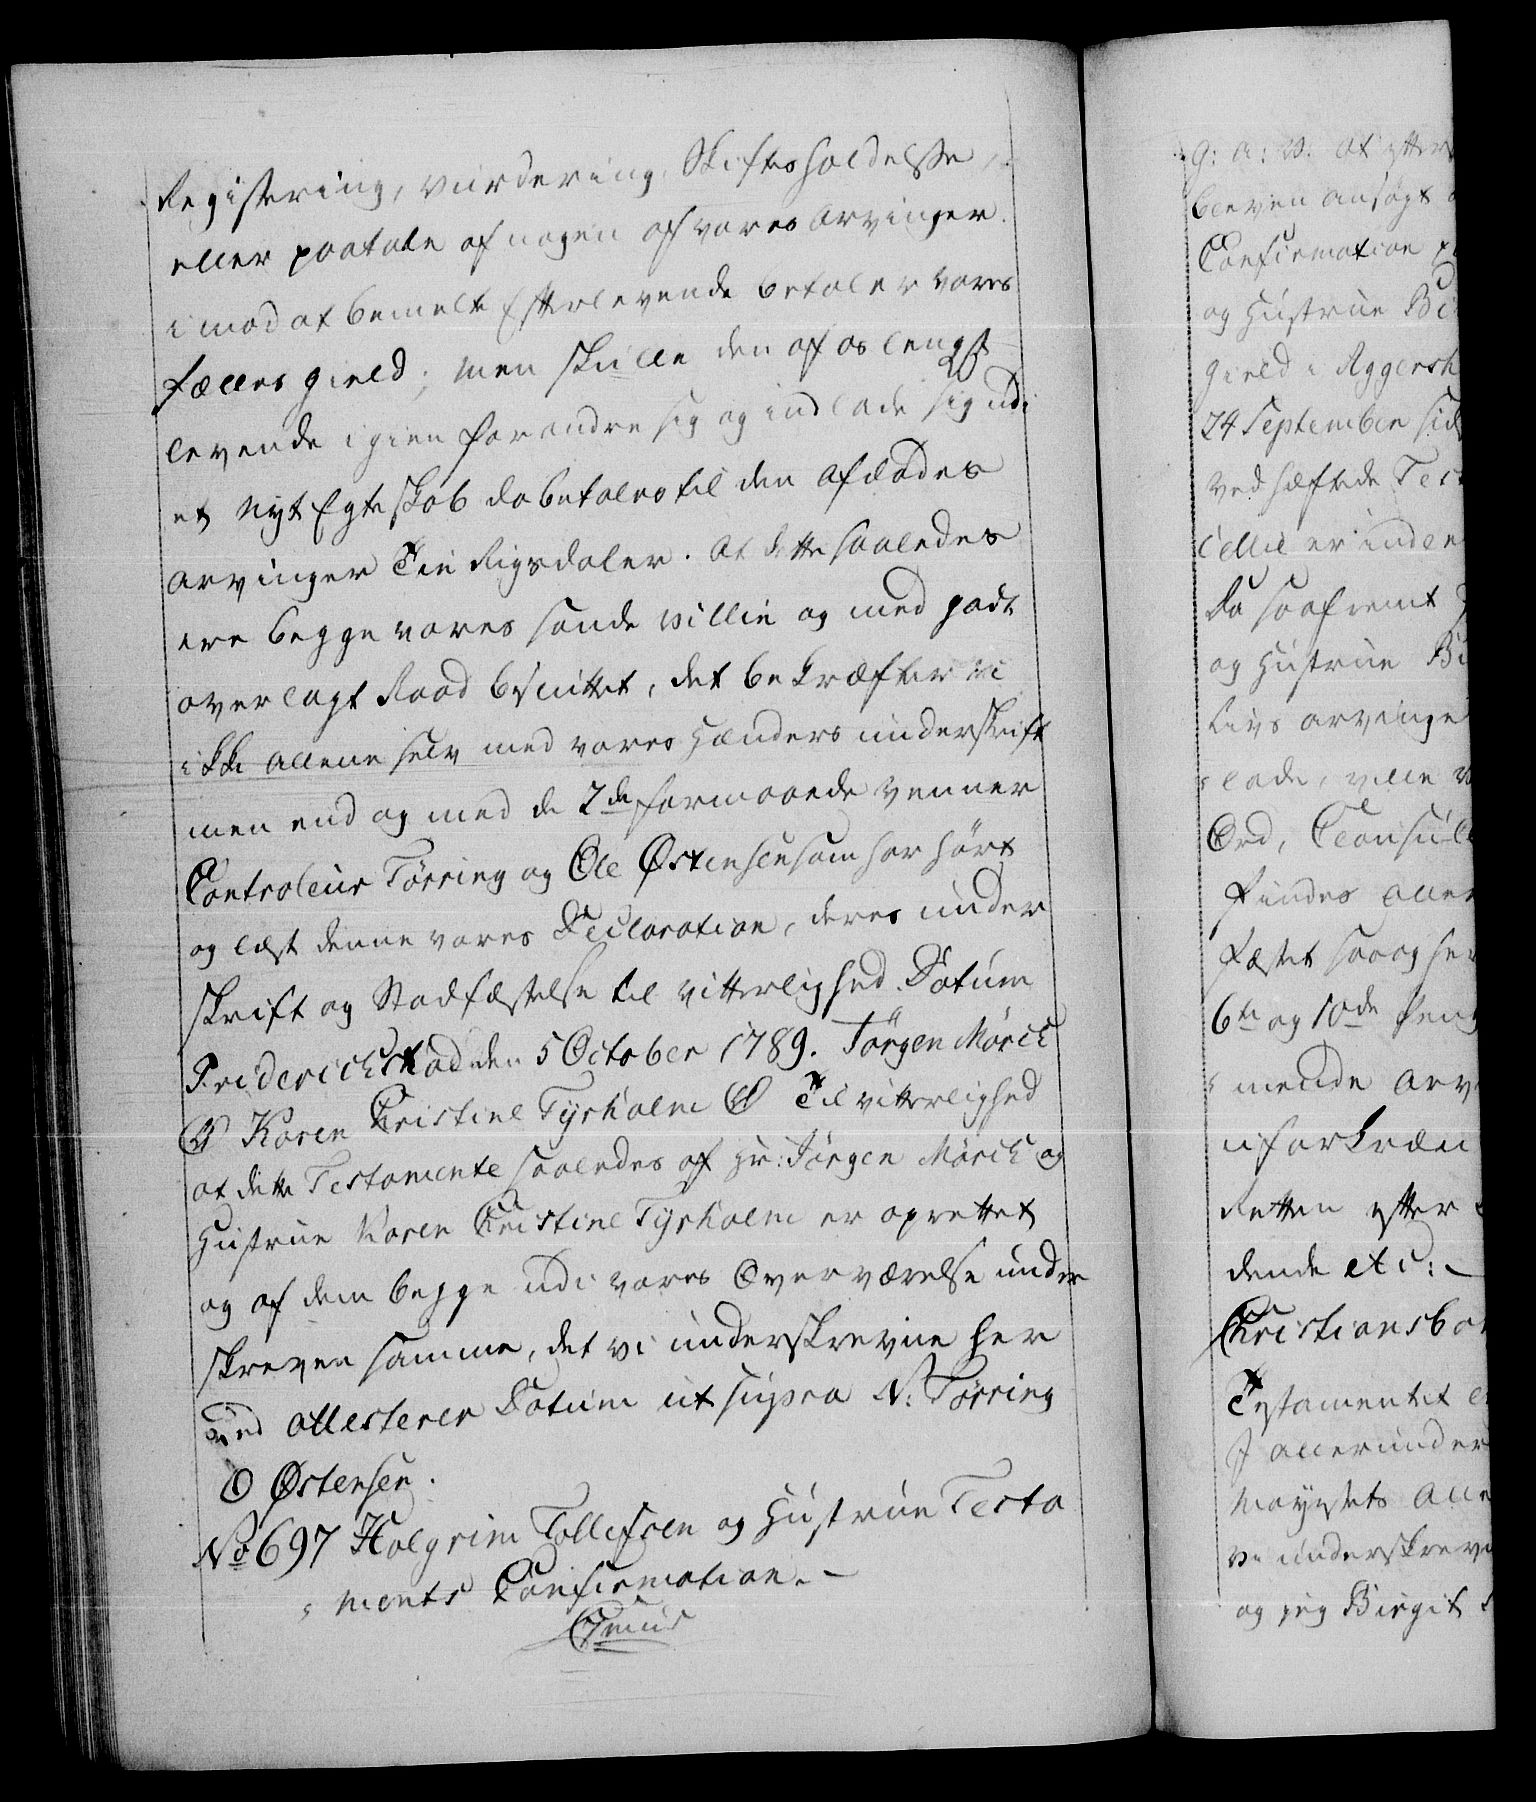 Registering, vurdering, Skiftes holdelse,
eller paatale af nogen af vores Arvinger.
imod at bemelte Efterlevende betaler vores
fælles gield; men skulle den af os lengst
levende igien forandre sig og indlade sig udi
et nyt Egteskab da betales til den afdødes
arvinger Tie Rigsdaler. At dette saaledes
ere begge vores sande villie og med godt
overlagt Raad besluttet, det bekræfter vi
ikke allene selv med vores Hænders underskrift
men end og med de 2de formaaede venner
Controleur Tørring og Ole Østensen som har hørt
og læst denne vores Declaration, deres under
skrift og Stadfæstelse til vitterlighed. Datum
Friderichstad den 5 October 1789. Jørgen Mørch
Karen Christine Tyrholm Til vitterlighed
at dette Testamente saaledes af Hr: Jørgen Mørch og
Hustrue Karen Christine Tyrholm er oprettet
og af dem begge udi vores Overværelse under
skreven samme, det vi underskrevne her
ved attesterer Datum ut supra N: Tørring
O Østensen.
No 697 Halgrim Tollefsen og Hustrue Testa
ments Confirmation.
G: A: V. At efter
bleven ansøgt
Confirmation
og Hustrue
Gield i Aggersh
24 September sid
vedhæftede Test
villie er inde
Da saafremt
og Hustrue Bi
Livs arvinge
lade, ville
Ord, Clausul
findes aller
fæstet saa og her
6te og 10de Peng
mende Arv
uforkræn
Retten efter
dende etc:
Christiansbor
Testamentet
I allerunder
Mayestets Alle
vi underskrev
og jeg Birgit